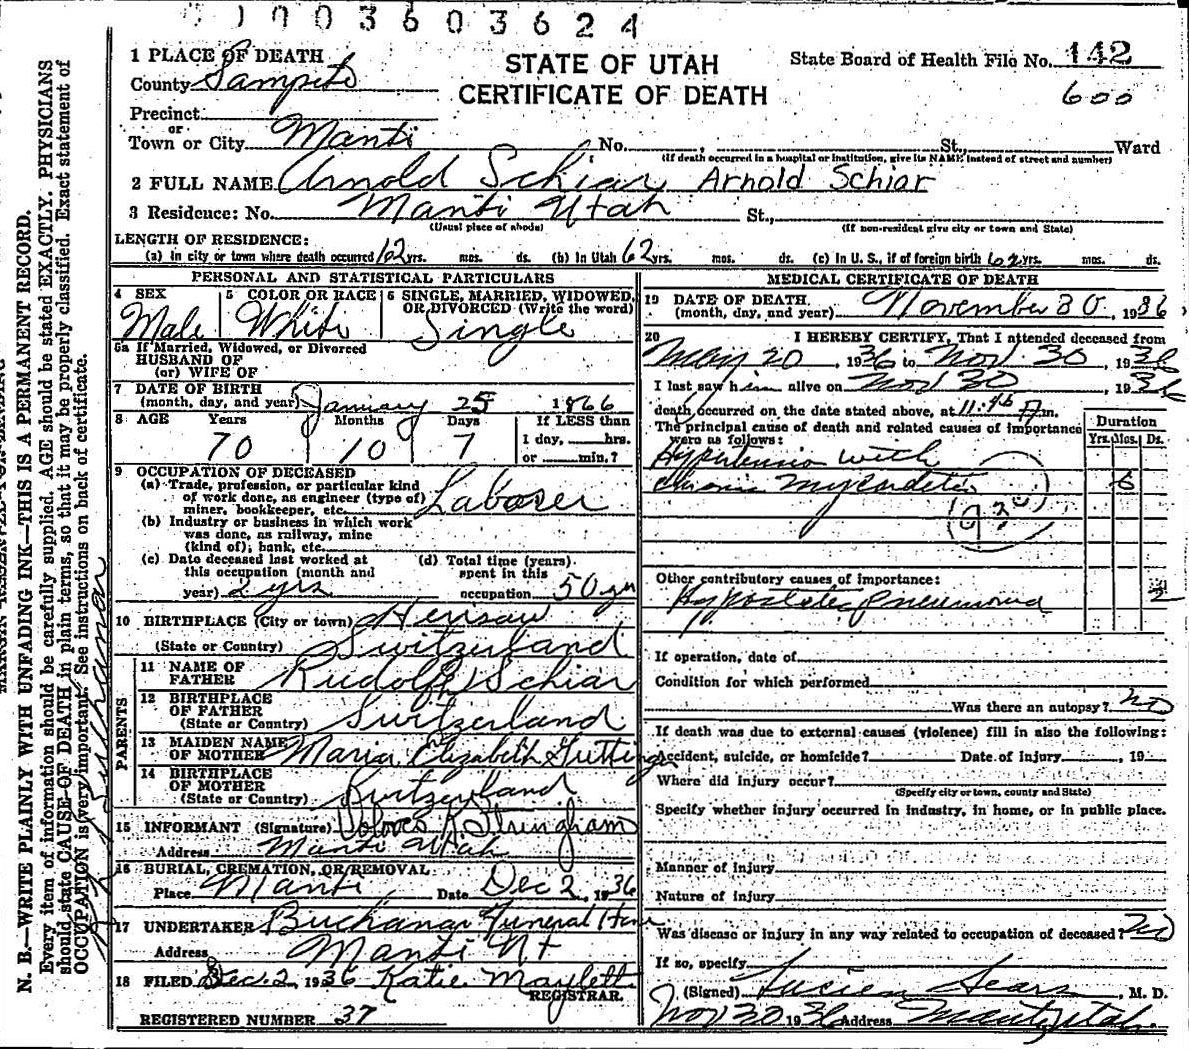 1003603624
1 PLACE OF DEATH
STATE OF UTAH
CERTIFICATE OF DEATH
State Board of Health File No. 142
600
County Sanpete
Precinct
or
Town or City Manti No. , St., Ward
(If death occurred in a hospital or institution, give its NAME instead of street and number)
2 FULL NAME Arnold Schiar Arnold Schiar
3 Residence: No. Manti Utah St.,
(Usual place of abode) (If non-resident give city or town and State)
LENGTH OF RESIDENCE:
(a) In city or town where death occurred 62 yrs. mos. ds. (b) In Utah 62 yrs. mos. ds. (c) In U. S., if of foreign birth 62 yrs. mos. ds.
PERSONAL AND STATISTICAL PARTICULARS
4 SEX Male
5 COLOR OR RACE White
6 SINGLE, MARRIED, WIDOWED, OR DIVORCED (Write the word) Single
6a If Married, Widowed, or Divorced
HUSBAND OF
(or) WIFE OF
7 DATE OF BIRTH
(month, day, and year) January 25 1866
8 AGE Years Months Days If LESS than
70 10 7 1 day, hrs.
or min.?
9 OCCUPATION OF DECEASED
(a) Trade, profession, or particular kind
of work done, as engineer (type of)
miner, bookkeeper, etc. Laborer
(b) Industry or business in which work
was done, as railway, mine
(kind of); bank, etc.
(c) Date deceased last worked at
this occupation (month and
year) 2 yrs
(d) Total time (years)
spent in this
occupation 50 yrs
10 BIRTHPLACE (City or town) Herisau
(State or Country) Switzerland
PARENTS
11 NAME OF
FATHER Rudolph Schiar
12 BIRTHPLACE
OF FATHER
(State or Country) Switzerland
13 MAIDEN NAME
OF MOTHER Maria Elizabeth
14 BIRTHPLACE
OF MOTHER
(State or Country) Switzerland
15 INFORMANT (Signature)
Address Manti Utah
16 BURIAL, CREMATION, OR REMOVAL
Place Manti Date Dec 2, 1936
17 UNDERTAKER Buchanan Funeral Home
Address Manti Ut
18 FILED Dec. 2, 1936 Katie Maylett
REGISTRAR.
REGISTERED NUMBER 37
MEDICAL CERTIFICATE OF DEATH
19 DATE OF DEATH
(month, day, and year) November 30, 1936
20 I HEREBY CERTIFY, That I attended deceased from
May 20 1936 to Nov. 30, 1936
I last saw him alive on Nov 30 1936
death occurred on the date stated above, at 11:45 P m.
The principal cause of death and related causes of importance
were as follows:
Duration
Yrs. Mos. Ds.
Hypertension with
chronic Myocarditis 6
930
Other contributory causes of importance:
Hypostatic Pneumonia 2
If operation, date of
Condition for which performed
Was there an autopsy? no
If death was due to external causes (violence) fill in also the following:
Accident, suicide, or homicide? Date of injury , 19
Where did injury occur?
(Specify city or town, county and State)
Specify whether injury occurred in industry, in home, or in public place.
Manner of injury
Nature of injury
Was disease or injury in any way related to occupation of deceased? No
If so, specify
(Signed) Lucien Sears, M. D.
Nov 30 1936 Address Manti, Utah.
N. B.—WRITE PLAINLY WITH UNFADING INK—THIS IS A PERMANENT RECORD.
Every item of information should be carefully supplied. AGE should be stated EXACTLY. PHYSICIANS
should state CAUSE OF DEATH in plain terms, so that it may be properly classified. Exact statement of
OCCUPATION is very important. See instructions on back of certificate.